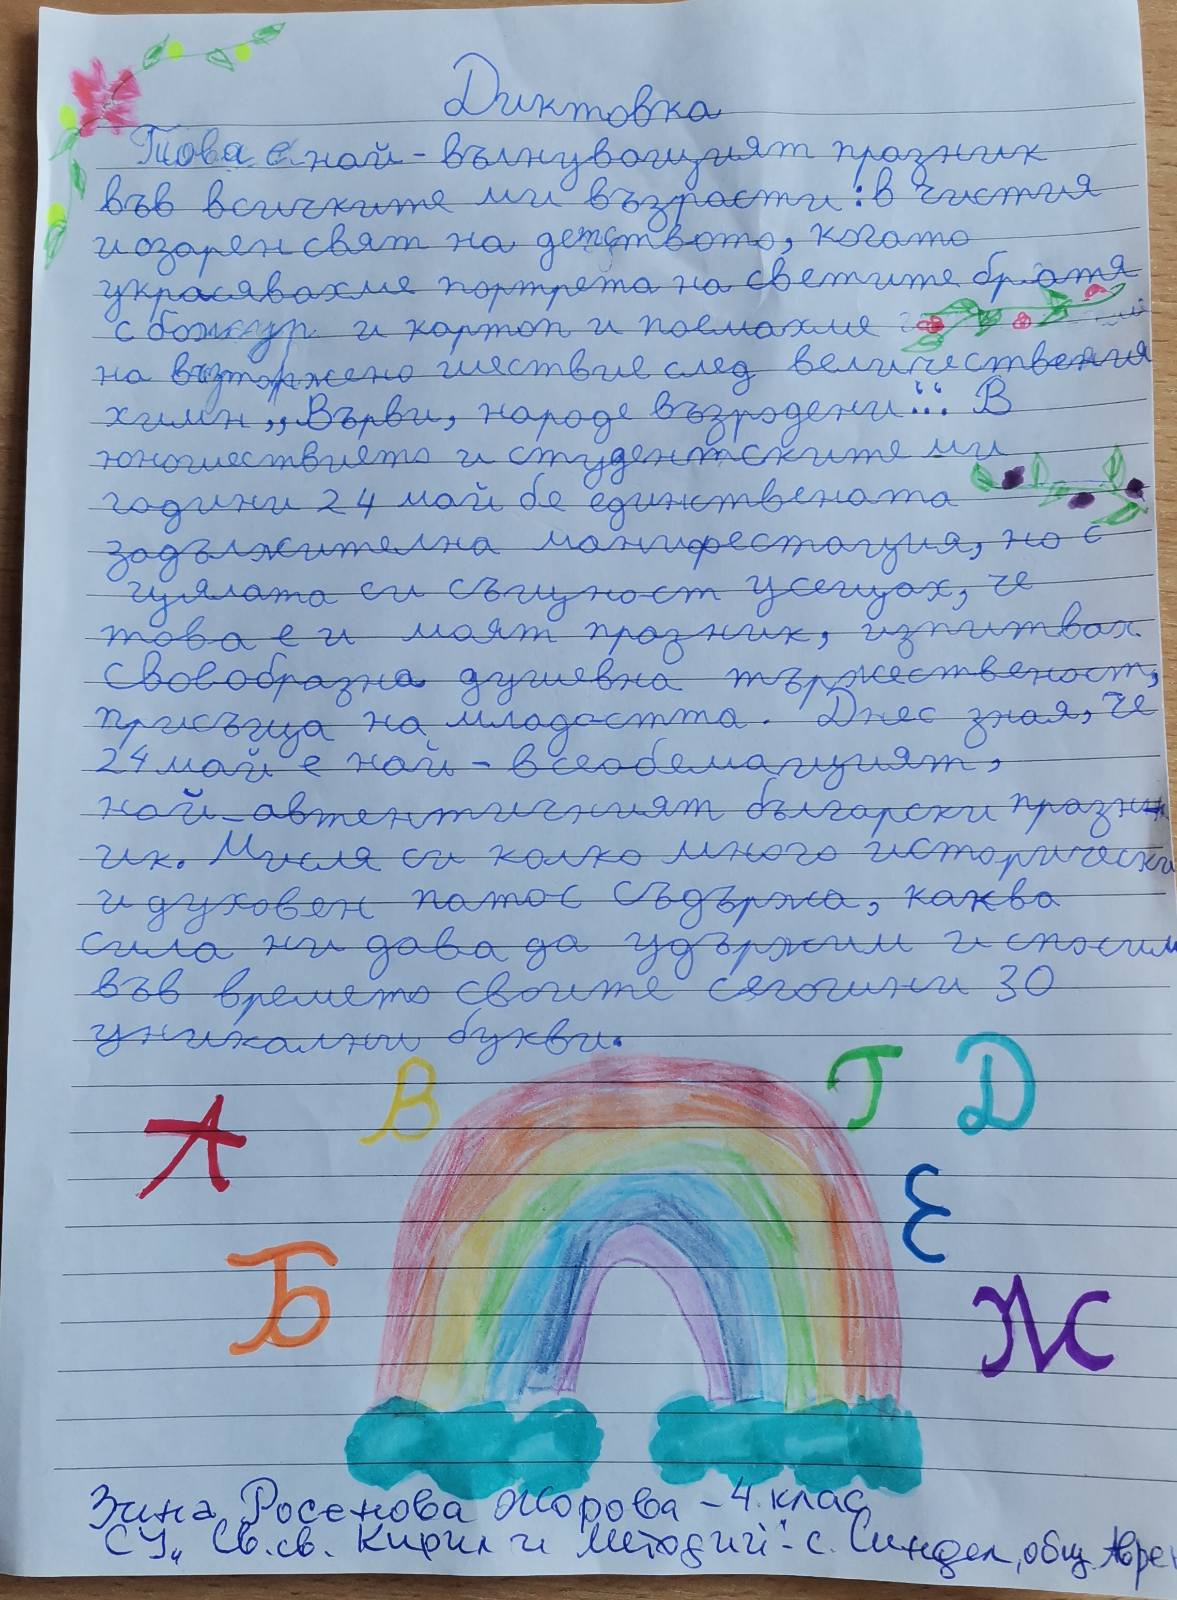 Диктовка
Това е най-вълнуващият празник
във всичките ми възрасти: в чистия
и озарен свят на детството, когато
украсявахме портрета на светите братя
с божур и картоп и поемахме
на възторжено шествие след величествения
химн „Върви, народе възродени“... В
юношествието и студентските ми
години 24 май бе единствената
задължителна манифестация, но с
цялата си същност усещах, че
това е и моят празник, изпитвах
своеобразна душевна тържественост,
присъща на младостта. Днес зная, че
24 май е най-всеобемащият,
най-автентичният български празн
ик. Мисля си колко много исторически
и духовен патос съдържа, каква
сила ни дава да удържим и спосим
във времето своите сягошни 30
уникални букви.
А В Г Д
Б Е Ж
Зина Росенова Жорова - 4. клас
СУ „Св.св. Кирил и Методий“ - с. Синдел, общ. Аврен